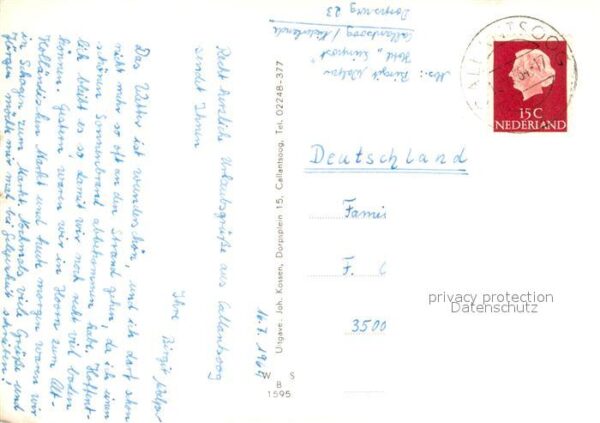 Recht herzliche Urlaubsgrüße aus Callantsoog
sendet Ihnen
Ihre Birgit
Das Wetter ist wunderschön, und ich darf schon
nicht mehr so oft an den Strand gehen, da ich einen
schönen Sonnenbrand abbekommen habe. Hoffent-
lich bleibt es so damit wir noch recht viel baden
können. Gestern waren wir in Hoorn zum Alt-
Holländischen Markt und heute morgen waren wir
in Schagen zum Markt. Nochmals viele Grüße und
mir mal bei Gelegenheit schreiben!
Uitgave: Joh. Kossen, Dorpsplein 15, Callantsoog, Tel. 02248-377
W S
B
1595
Abs.: Birgit
Hotel
Callantsoog / Niederlande
Dorpsweg 23
CALLANTSOOG
15 C
NEDERLAND
Deutschland
Famil
F. C
3500
privacy protection
Datenschutz